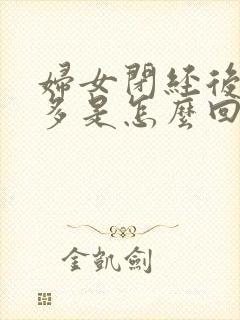 婦女閉経後
多是怎麼回
金凱劍